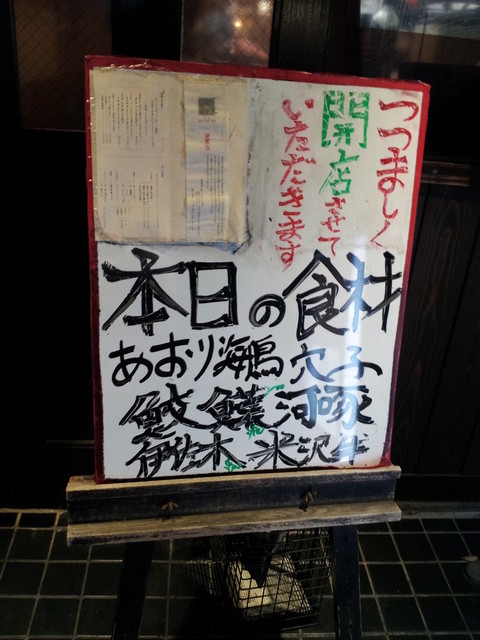 つつましく
開店させて
いただきます
本日の食材
あおり海鳥 穴子
鮫 鰈 河豚
伊佐木 米沢牛